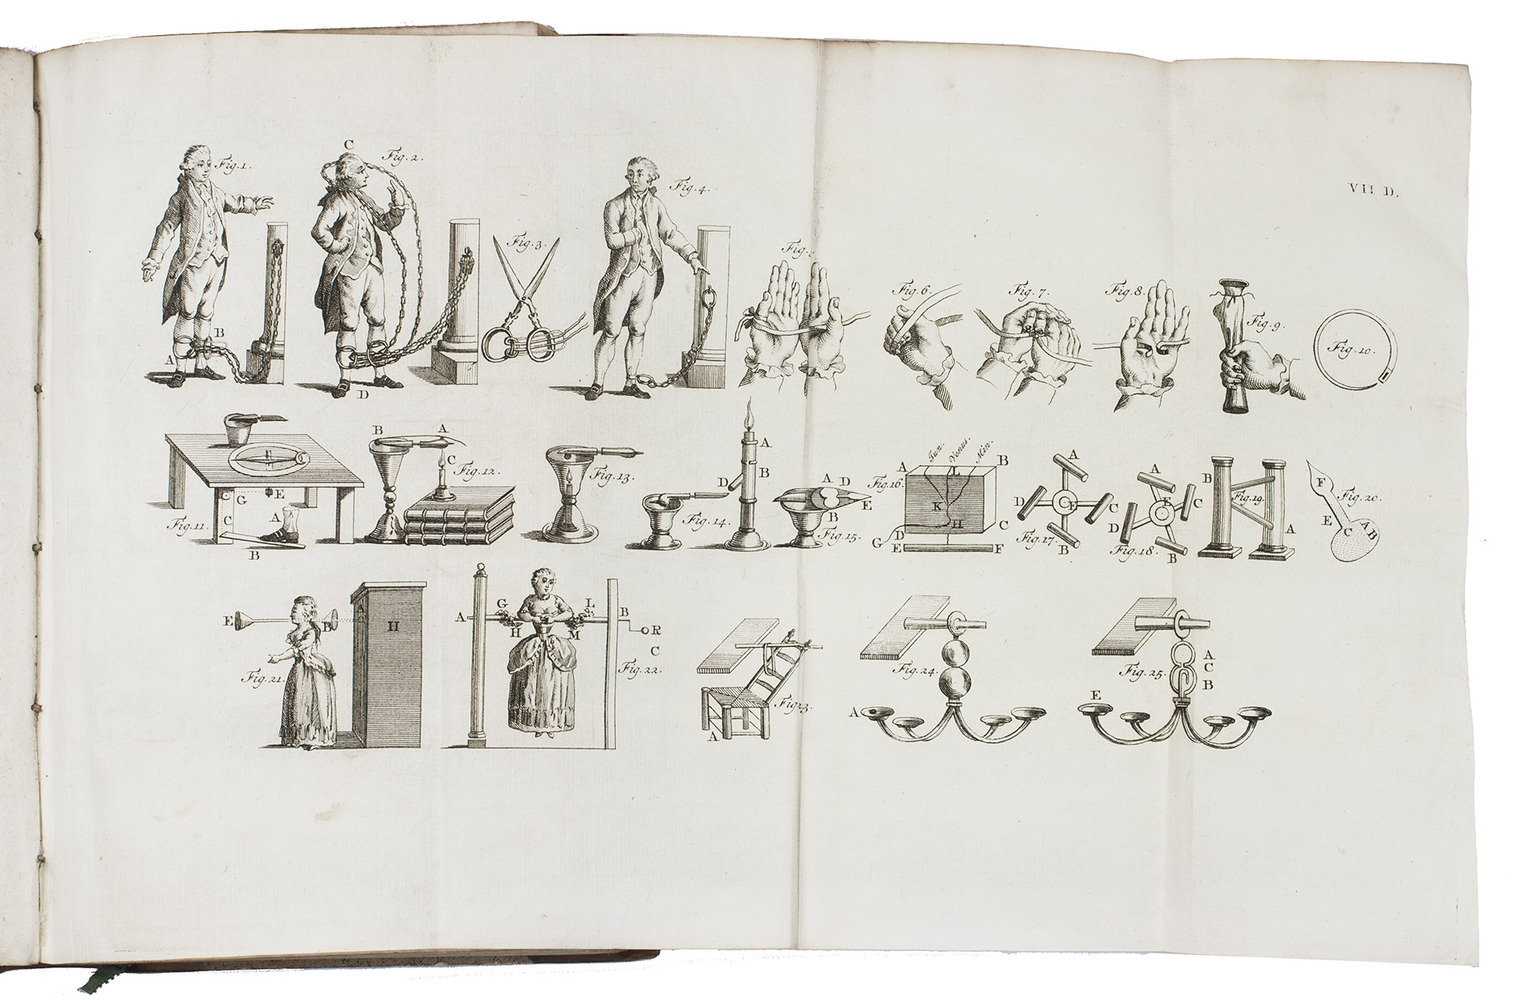 VII D.
Fig. 1.
A
B
C
Fig. 2.
D
Fig. 3.
Fig. 4.
Fig.
Fig. 6.
Fig. 7.
Fig. 8.
Fig. 9.
Fig. 10.
Fig. 11.
C
G
E
C
A
C
B
B
A
C
Fig. 12.
Fig. 13.
A
B
D
Fig. 14.
A D
E
B
Fig. 15.
Jun. Venus. Min.
A
L
B
Fig. 16.
K
H
C
D
G
E
F
A
D
E
C
B
Fig. 17.
A
E
C
D
B
Fig. 18.
B
Fig. 19.
A
F
Fig. 20.
E
C
A
B
E
B
H
Fig. 21.
A
G
H
L
M
B
R
C
Fig. 22.
Fig. 23.
A
Fig. 24.
A
Fig. 25.
A
C
B
E